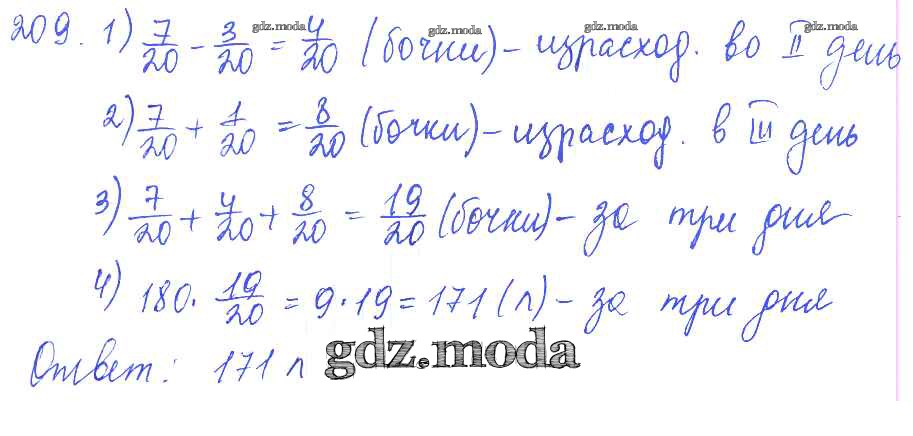 209. 1) 7/20 - 3/20 = 4/20 (бочки) - израсход. во II день
gdz.moda gdz.moda gdz.moda gdz.moda
2) 7/20 + 1/20 = 8/20 (бочки) - израсход. в III день
3) 7/20 + 4/20 + 8/20 = 19/20 (бочки) - за три дня
4) 180 · 19/20 = 9 · 19 = 171 (л) - за три дня
Ответ: 171 л
gdz.moda